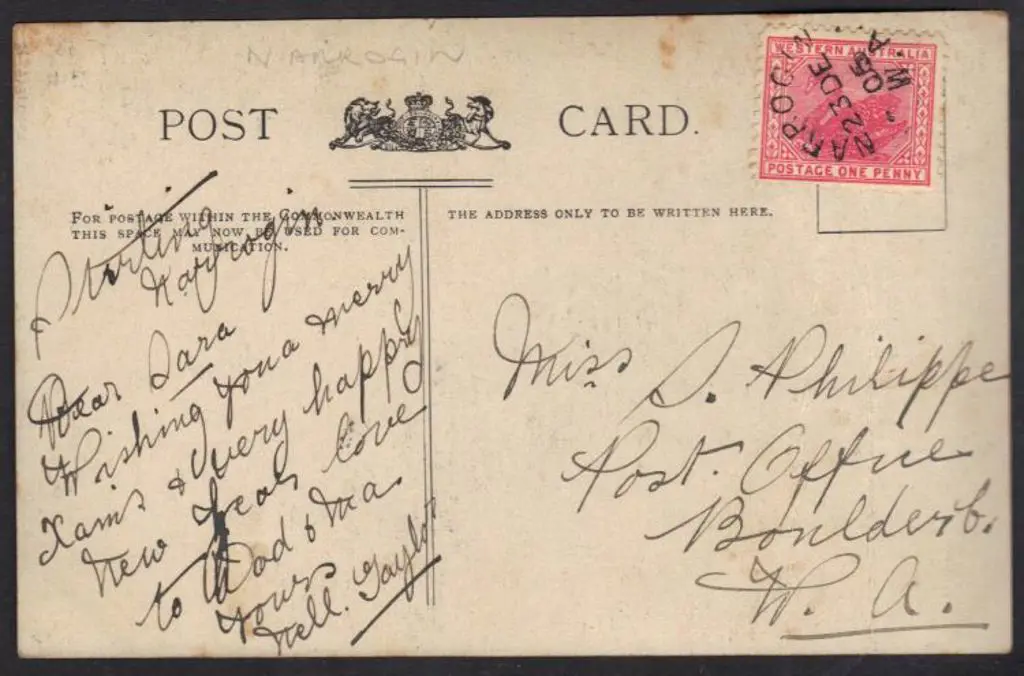 NARROGIN
POST CARD.
WESTERN AUSTRALIA
POSTAGE ONE PENNY
NARROGIN
23 DE
05
W.A
FOR POSTAGE WITHIN THE COMMONWEALTH
THIS SPACE MAY NOW BE USED FOR COM-
MUNICATION.
THE ADDRESS ONLY TO BE WRITTEN HERE.
Stirling
Narrogin
Dear Sara
Wishing you a merry
Xams & very happy
New Year love
to Dad & Ma
Yours
Nell. Taylor
Miss S. Philippe
Post Office
Boulder
W. A.